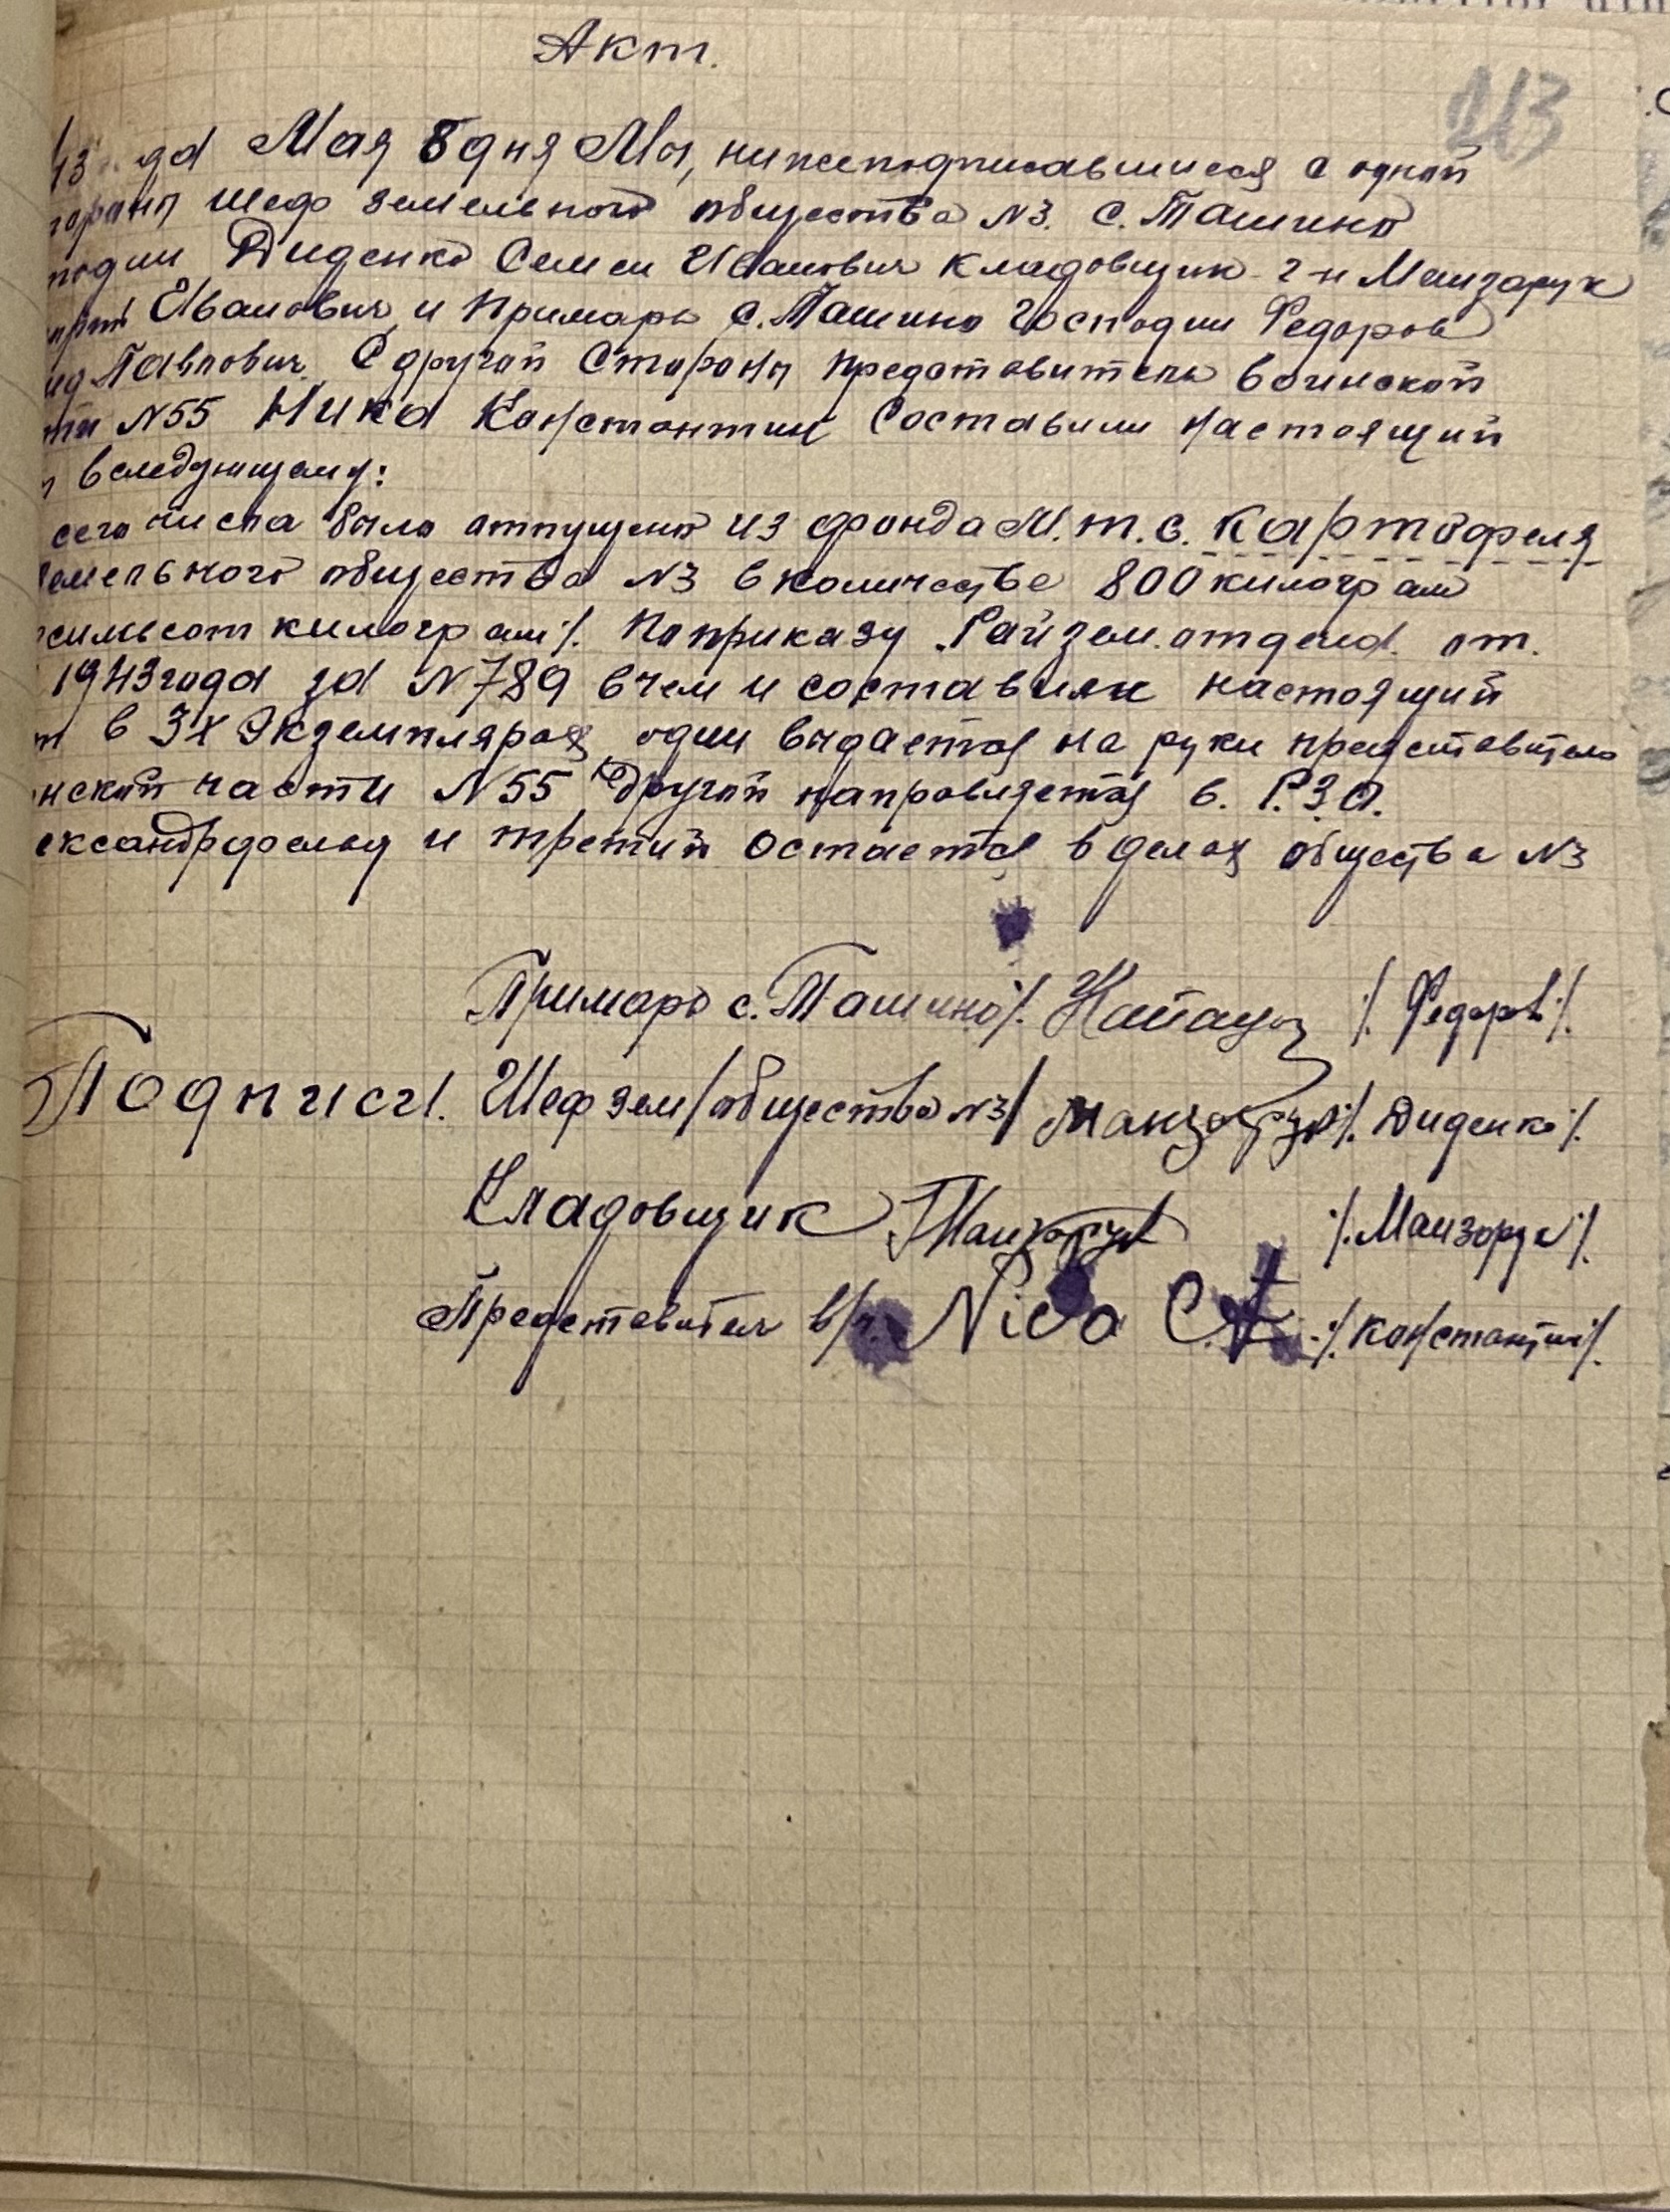 Акт.
213
43 да Мая 8 дня Мы, нижеподписавшиеся с одной
тораны шеф земельного общества N3. с. Ташино
подин Диденко Семен Иванович кладовщик г-н Манзарук
Иванович и Примарь с. Ташино Господин Федоров
ид Павлович. С другой Стораны представитель воинской
ти N55 Нико Константин Составили настоящий
в следующему:
сего числа было отпущено из фонда М.т.с. картофеля
емельного общества N3 в количестве 800 килограм
сильсот килограм /. По приказу Райзем.отдела. от.
1943 года за N789 в чем и составили настоящий
т в 3х Экземплярах один выдается на руки представителю
нской части N55 Другой направляется в. Р.З.О.
ександрфельд и третий остается в делах общества N3
Примарь с. Ташино /. /. Федоров /.
Подписи. Шеф зем/общества N3/ /. Диденко /.
Кладовщик /. Манзорук /.
Представитель в/ч. Nico C. /. Константин /.